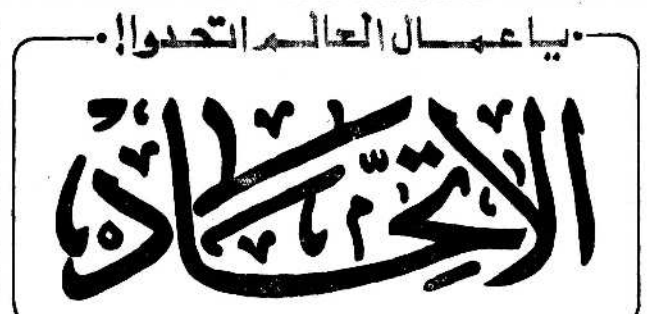 يا عمال العالم اتحدوا!
الاتّحاد